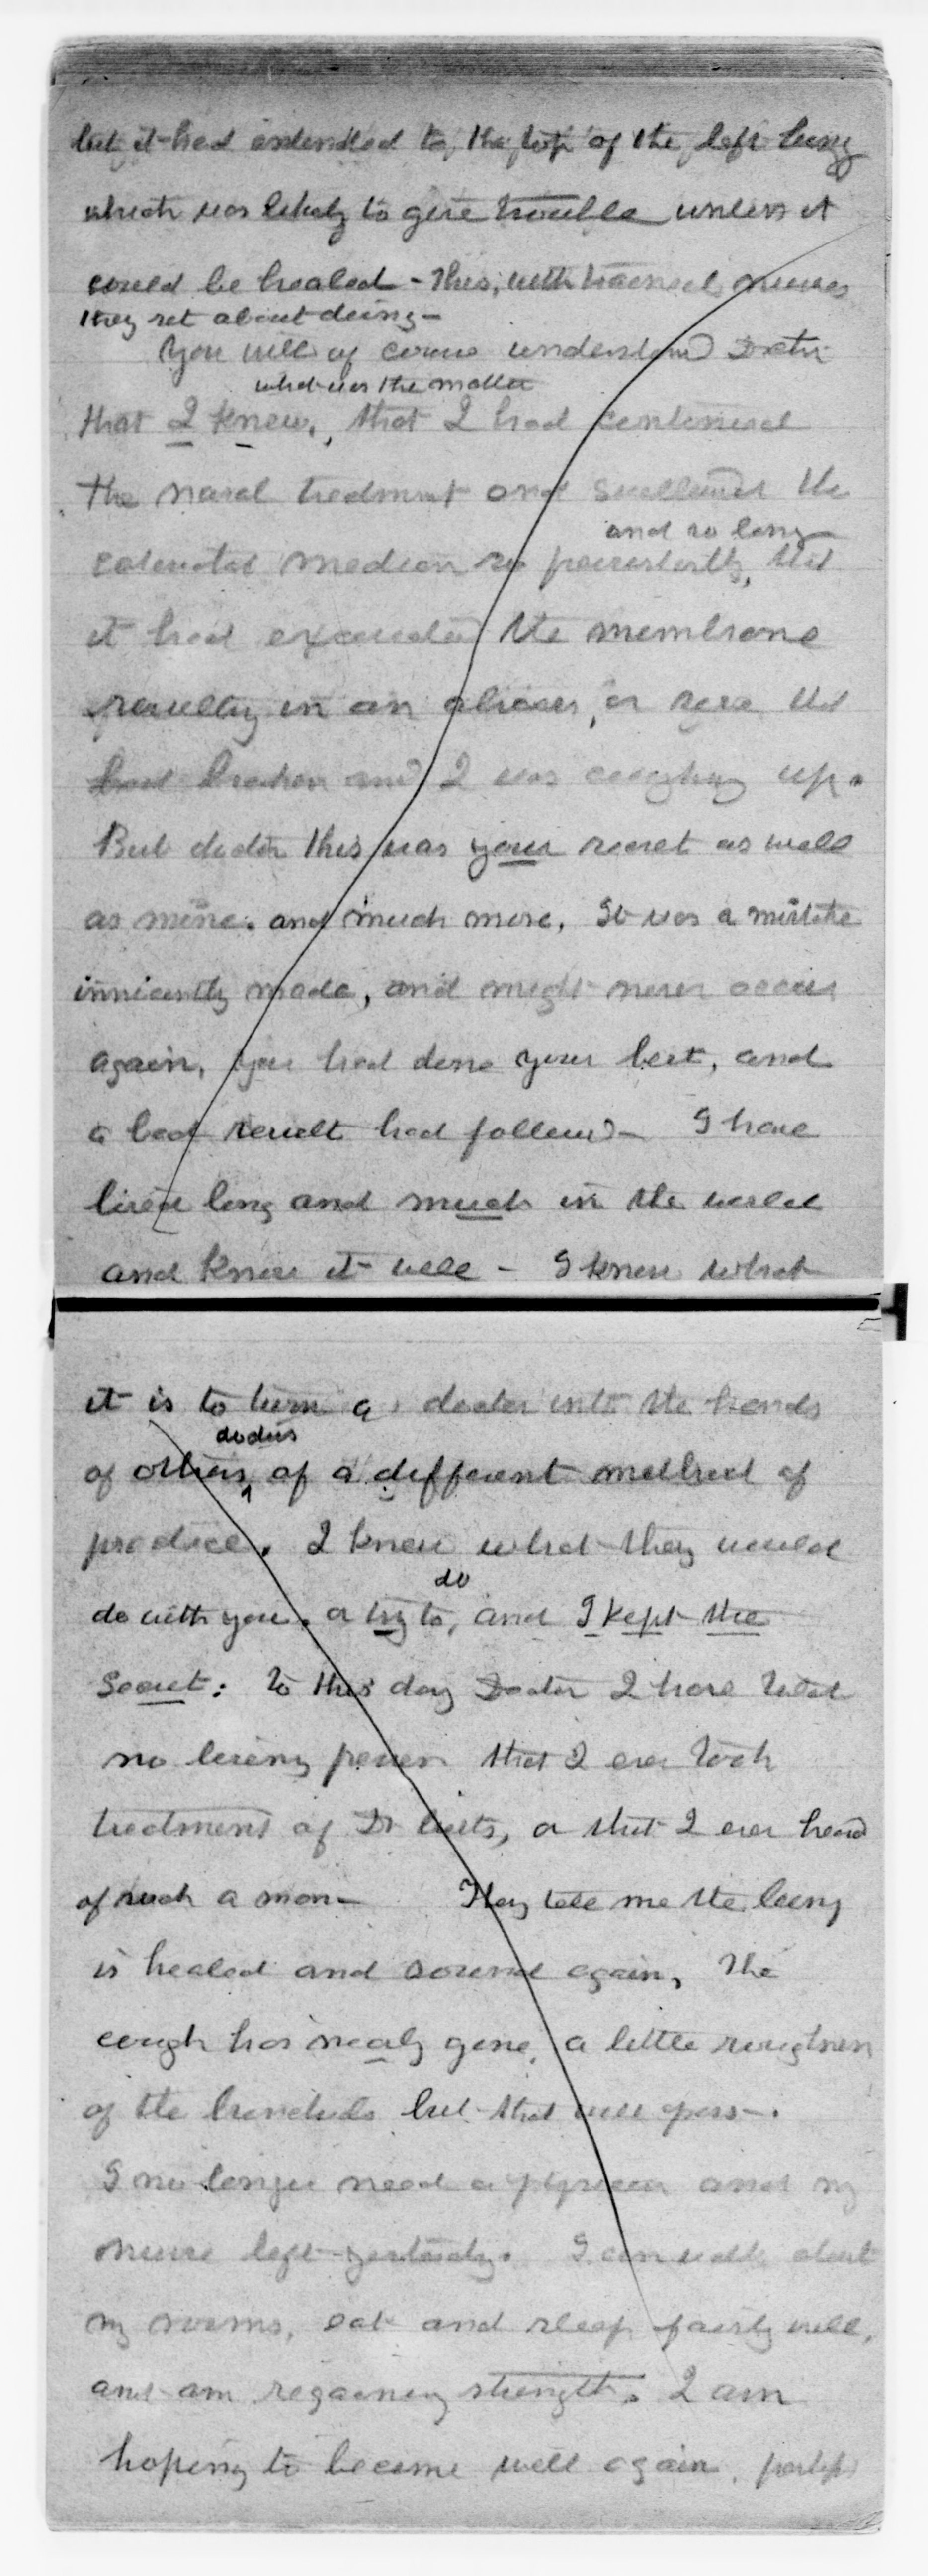 but it had extended to, the top of the left lung
which was likely to give trouble unless it
could be healed - This, with trained nurses
they set about doing -
You will of course understand Doctor
what was the matter
that I knew, that I had continued
the nasal treatment and swallowed the
and so long
medicen so persistently, that
it had the membrane
resulting in an abcess, or that
had broken and I was coughing up.
But doctor this was your secret as well
as mine. and much more. It was a mistake
innicently made, and might never occur
again, you had done your best, and
a bad result had followed - I have
lived long and much in the world
and know it well - I knew what
it is to turn a doctor into the hands
doctors
of others, of a different method of
practice. I knew what they would
do
do with you. a try to, and I kept the
Secret: to this day Doctor I have told
no living person that I ever took
treatment of Dr , or that I ever heard
of such a man - They tell me the lung
is healed and sound again, the
cough has nearly gone, a little roughness
of the bronchials but that will pass -.
I no longer need a and my
nurse left yesterday. I can walk about
my rooms, eat and sleep fairly well,
and am regaining strength. I am
hoping to become well again, perhaps